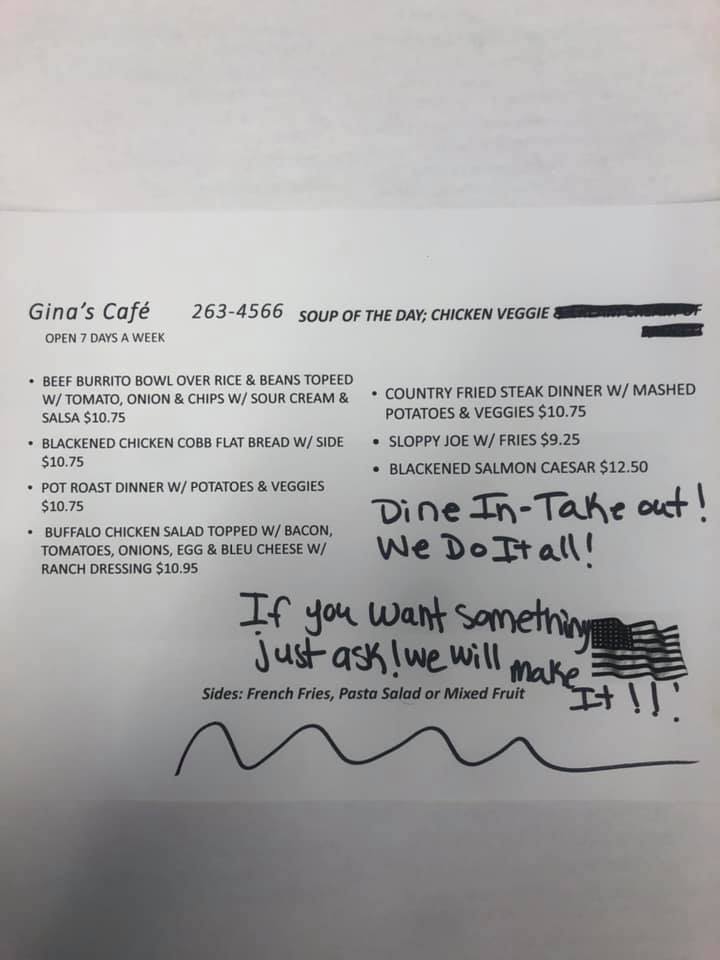 Gina's Café 263-4566 SOUP OF THE DAY; CHICKEN VEGGIE
OPEN 7 DAYS A WEEK
• BEEF BURRITO BOWL OVER RICE & BEANS TOPEED
W/ TOMATO, ONION & CHIPS W/ SOUR CREAM &
SALSA $10.75
• BLACKENED CHICKEN COBB FLAT BREAD W/ SIDE
$10.75
• POT ROAST DINNER W/ POTATOES & VEGGIES
$10.75
• BUFFALO CHICKEN SALAD TOPPED W/ BACON,
TOMATOES, ONIONS, EGG & BLEU CHEESE W/
RANCH DRESSING $10.95
• COUNTRY FRIED STEAK DINNER W/ MASHED
POTATOES & VEGGIES $10.75
• SLOPPY JOE W/ FRIES $9.25
• BLACKENED SALMON CAESAR $12.50
Dine In-Take out!
We Do It all!
If you want something
just ask! we will make
It!!!
Sides: French Fries, Pasta Salad or Mixed Fruit